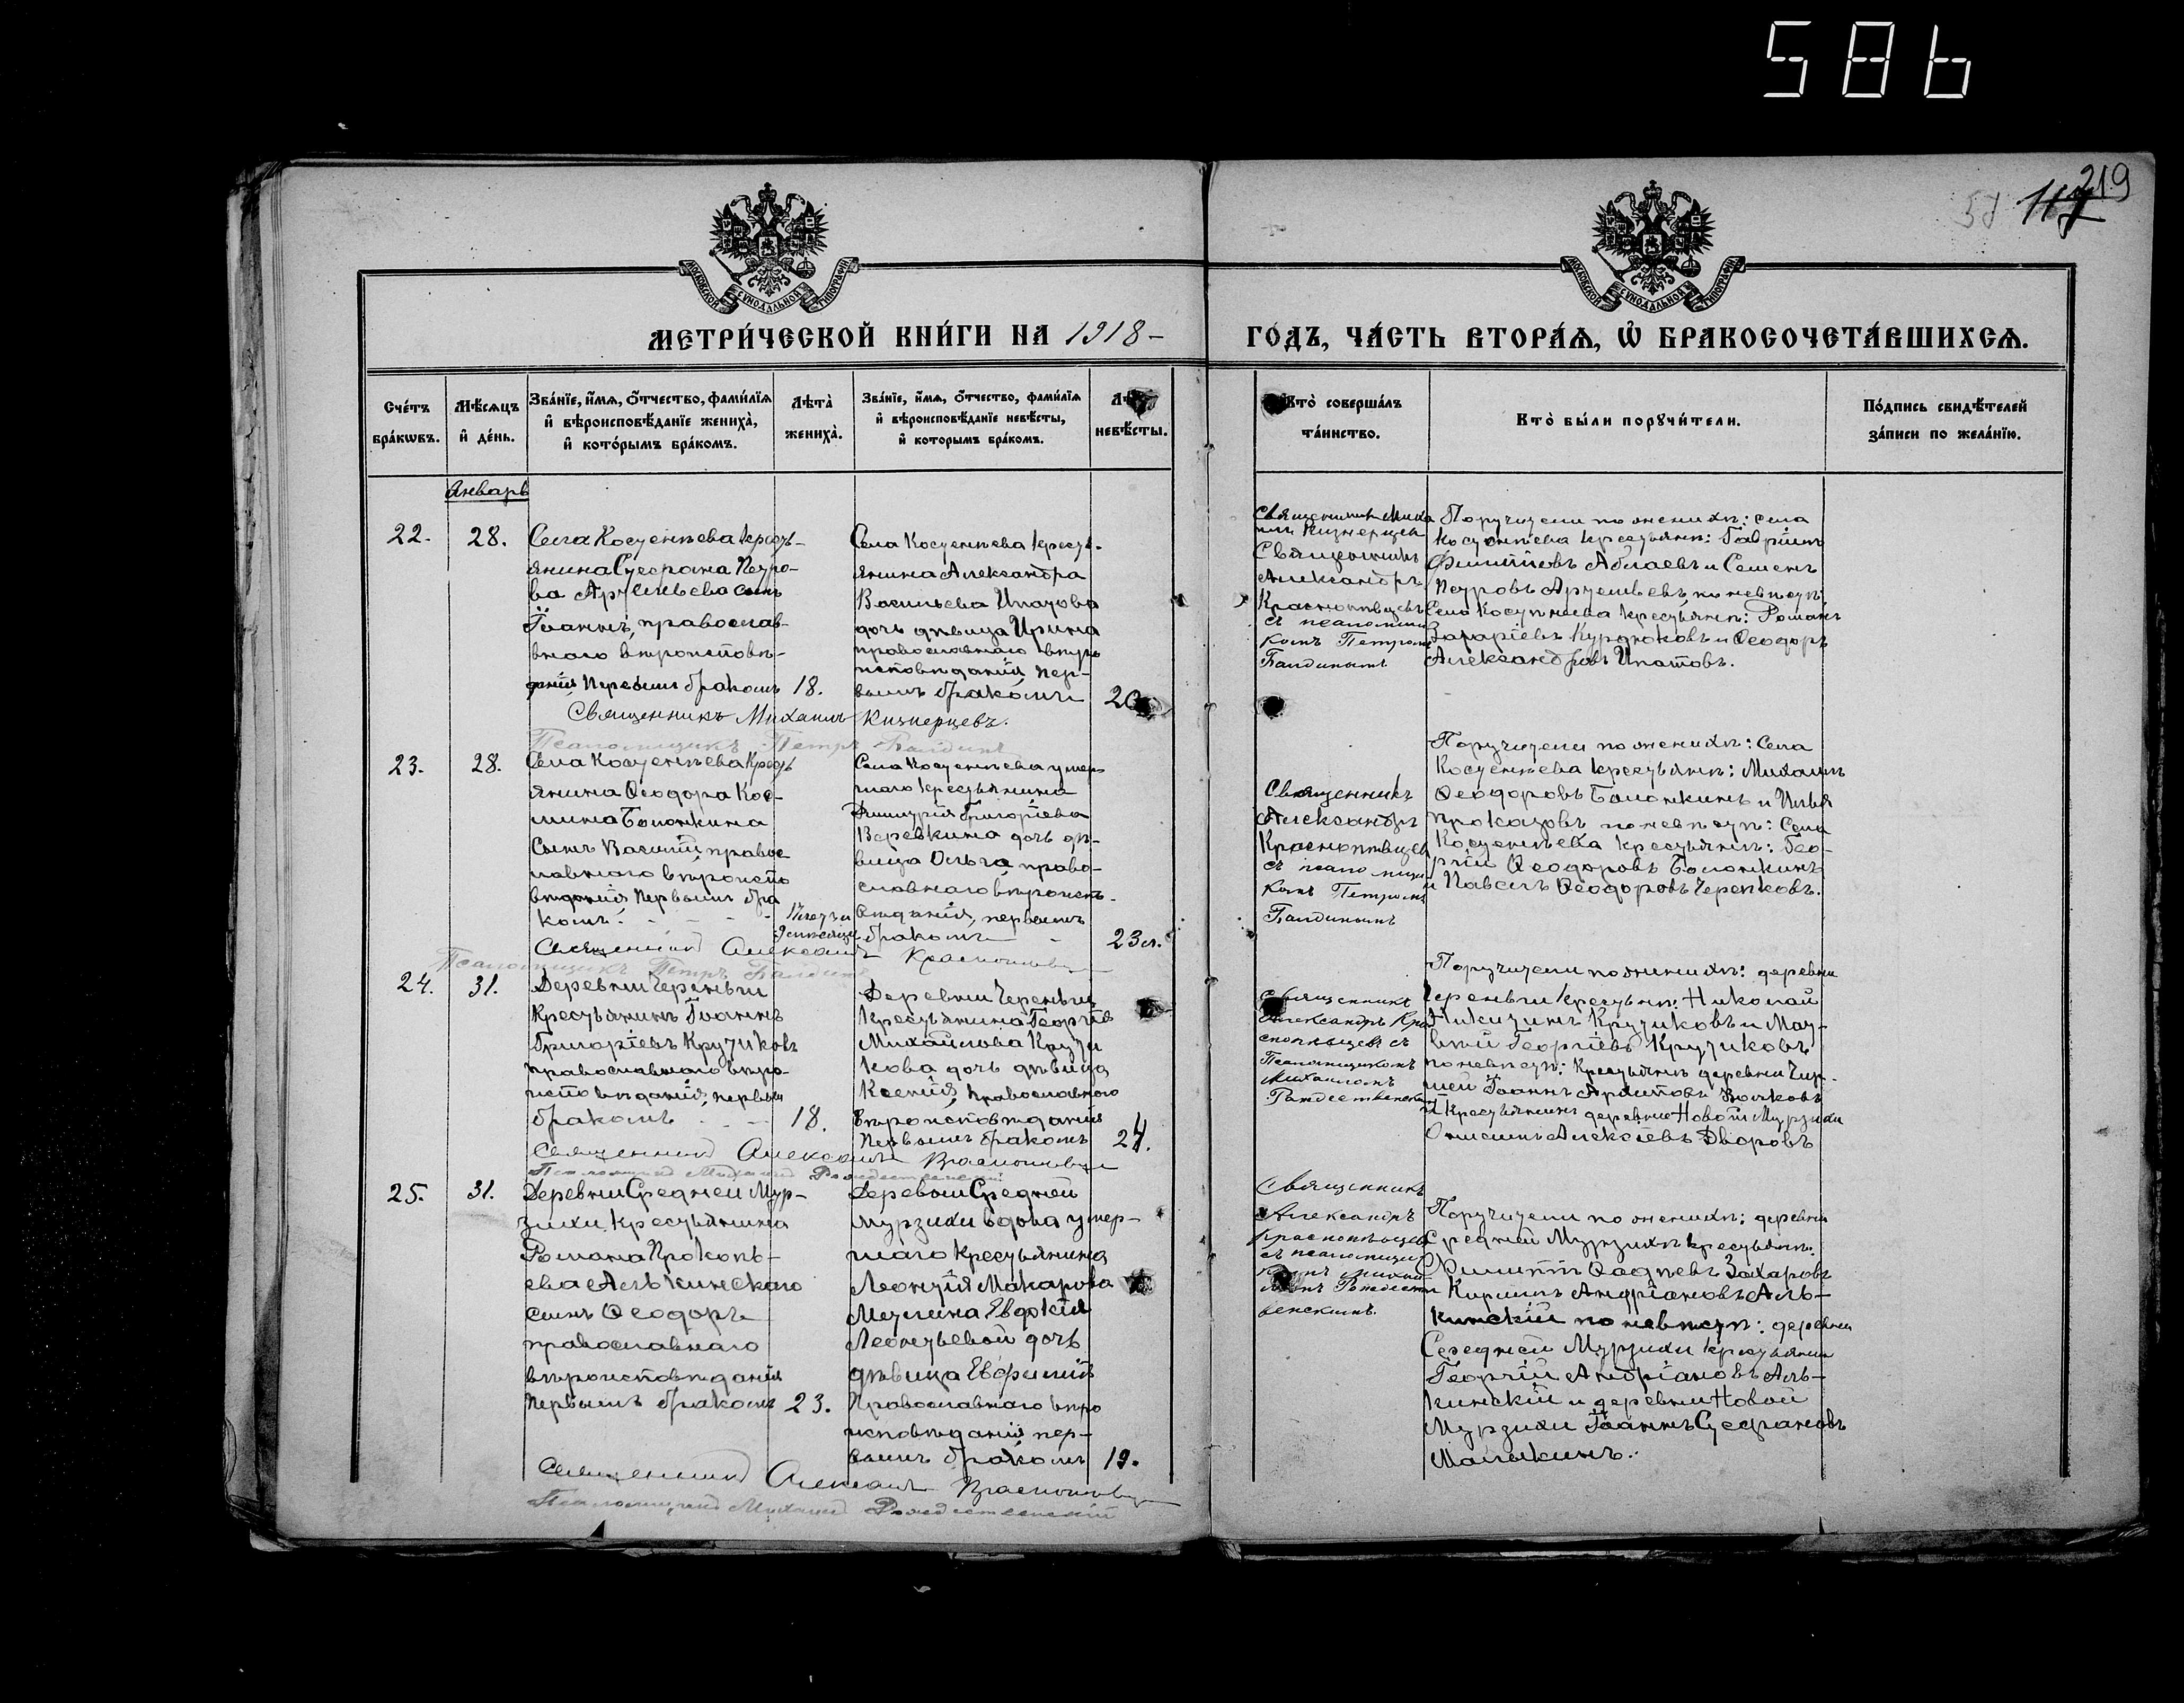 586
219
117
МОСКОВСКОЙ СѴНОДАЛЬНОЙ ТИПОГРАФІИ
МОСКОВСКОЙ СѴНОДАЛЬНОЙ ТИПОГРАФІИ
МЕТРИ́ЧЕСКОЙ КНИ́ГИ НА 1918 –
ГО́ДЪ, ЧА́СТЬ ВТОРА́Ѧ, Ѽ БРАКОСОЧЕТА́ВШИХСѦ.
Сче́тъ бра́кѡвъ.
Мѣ́сѧцъ и҆ де́нь.
Зва́нїе, и҆́мѧ, о҆́тчество, фами́лїѧ и҆ вѣроисповѣ́данїе жениха̀, и҆ кото́рымъ бра́комъ.
Лѣта̀ жениха̀.
Зва́нїе, и҆́мѧ, о҆́тчество, фами́лїѧ и҆ вѣроисповѣ́данїе невѣ́сты, и҆ которымъ бра́комъ.
невѣ́сты.
Кто̀ соверша́лъ та́инство.
Кто̀ бы́ли порꙋчи́тели.
По́дпись свидѣ́телей за́писи по жела́нїю.
Январь
22.
28.
Села Косуенѣева кресть-
янина Стефана Петро-
ва Артемьева сынъ
Іоаннъ, православ-
наго вѣроисповѣ-
данія, первымъ бракомъ
18.
Села Косуенѣева кресть-
янина Александра
Васильева Ипатова
дочь дѣвица Ирина
православнаго вѣро
исповѣданія, пер-
вымъ бракомъ
20
Священникъ Миха
илъ Кизнерцевъ
Священникъ
Александръ
Краснопѣвцевъ
съ псаломщи
комъ Петромъ
Балдинымъ
Поручители по женихѣ: села
Косуенѣева крестьяне: Гавріилъ
Филипповъ Аблаевъ и Семенъ
Петровъ Артемьевъ, по невѣстѣ:
Села Косуенѣева крестьяне: Романъ
Захаріевъ Курдюковъ и Ѳеодоръ
Александровъ Ипатовъ.
Священникъ Михаилъ Кизнерцевъ.
Псаломщикъ Петръ Балдинъ
23.
28.
Села Косуенѣева кресть
янина Ѳеодора Кос-
мина Болонкина
сынъ Василій правос
лавнаго вѣроиспо
вѣданія первымъ бра
комъ.
Села Косуенѣева умер-
шаго крестьянина
Димитрія Григоріева
Веревкина дочь дѣ-
вица Ольга, право-
славнаго вѣроиспо-
вѣданія, первымъ
бракомъ
23 л.
Священникъ
Александръ
Краснопѣвцевъ
съ псаломщи
комъ Петромъ
Балдинымъ
Поручители по женихѣ: Села
Косуенѣева крестьяне: Михаилъ
Ѳеодоровъ Болонкинъ и Илья
Прокаловъ по невѣстѣ: Села
Косуенѣева крестьяне: Гео-
ргій Ѳеодоровъ Болонкинъ
и Павелъ Ѳеодоровъ Черенковъ.
Священникъ Александръ Краснопѣвцевъ
Псаломщикъ Петръ Балдинъ
24.
31.
Деревни Чершыли
крестьянинъ Іоаннъ
Григоріевъ Крутиковъ
православнаго вѣро-
исповѣданія, первым
бракомъ
18.
Деревни Чершыли
крестьянина Георгія
Михайлова Крути
кова дочь дѣвица
Ксенія, православнаго
вѣроисповѣданія
первымъ бракомъ
24.
Священникъ
Александръ Кра
снопѣвцевъ съ
Псаломщикомъ
Михаиломъ
Рождественскимъ
Поручители по женихѣ: деревни
Чершыли крестьяне: Николай
Никитинъ Крутиковъ и Мат-
вѣй Георгіевъ Крутиковъ
по невѣстѣ: крестьяне деревни Чер-
шылей Іоаннъ Архиповъ Волковъ
и крестьянинъ деревни Новой Мурзихи
Онисимъ Алексіевъ Дворовъ
Священникъ Александръ Краснопѣвцевъ
Псаломщикъ Михаилъ Рождественскій
25.
31.
Деревни Средней Мур-
зихи крестьянина
Романа Прокопь-
ева Алькинскаго
сынъ Ѳеодоръ
православнаго
вѣроисповѣданія
первымъ бракомъ
23.
Деревни Средней
Мурзихи вдова умер-
шаго крестьянина
Леонтія Макарова
Мулина Евдокія
Леонтьевой дочь
дѣвица Евфимія
Православнаго вѣро
исповѣданія пер-
вымъ бракомъ
19.
Священникъ
Александръ
Краснопѣвцевъ
съ псаломщи
комъ Михаи
ломъ Рождест
венскимъ.
Поручители по женихѣ: деревни
Средней Мурзихи крестьяне:
Филиппъ Ѳадѣевъ Захаровъ
и Кириллъ Андріановъ Аль-
кинскій по невѣстѣ: деревни
Середней Мурзихи крестьянин
Георгій Андріановъ Аль-
кинскій и деревни Новой
Мурзихи Іоаннъ Стефановъ
Малыкинъ.
Священникъ Александръ Краснопѣвцевъ
Псаломщикъ Михаилъ Рождественскій